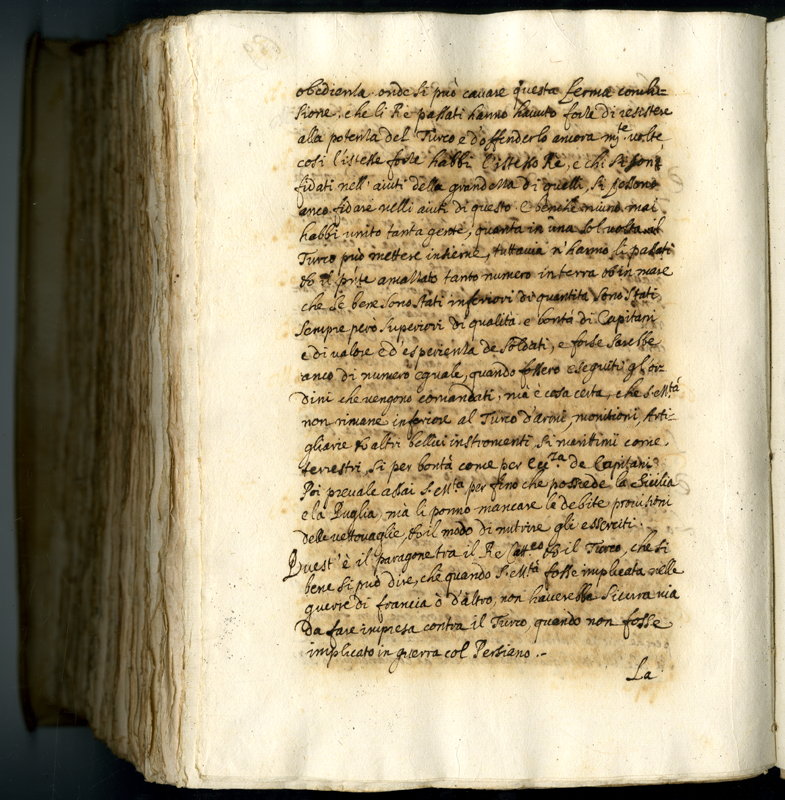 obedienza. onde si può cauare questa ferma conclu=
sione, che li Re passati hanno hauuto forze di resistere
alla potenza del Turco e d'offenderlo ancora m.te uolte
cosi l'istesse forze habbi l'istesso Re, e chi si son'
fidati nell'aiuti della grandezza di quelli, si possono
anco fidare nelli aiuti di questo. E benche niuno mai
habbi unito tanta gente, quanta in una sol uolta il
Turco può mettere insieme, tuttauia n'hanno li passati
& il pñte amassato tanto numero in terra & in mare
che se bene sono stati inferiori di quantità sono stati
sempre però superiori di qualità. e bontà di Capitani
e di ualore e d'esperienza de soldati, e forse sarebbe
anco di numero eguale, quando fossero eseguiti gl'or=
dini che uengono comandati, mà è cosa certa, che S. M.tà
non rimane inferiore al Turco d'armi, monitioni, Arti=
gliarie & altri bellici instromenti si maritimi come
terrestri, si per bontà come per ecc.za de Capitani
Poi preuale assai S. M.tà per fino che possiede la Sicilia
e la Puglia, ma li ponno mancare le debite prouisioni
delle uettouaglie, & il modo di nutrire gli esserciti.
Quest'è il paragone tra il Re Catt.co & il Turco, che si
bene si può dire, che quando S. M.tà fosse implicata nelle
guerre di francia ò d'altro, non hauerebbe sicura uia
Da fare impresa contra il Turco, quando non fosse
implicato in guerra col Persiano.-
La